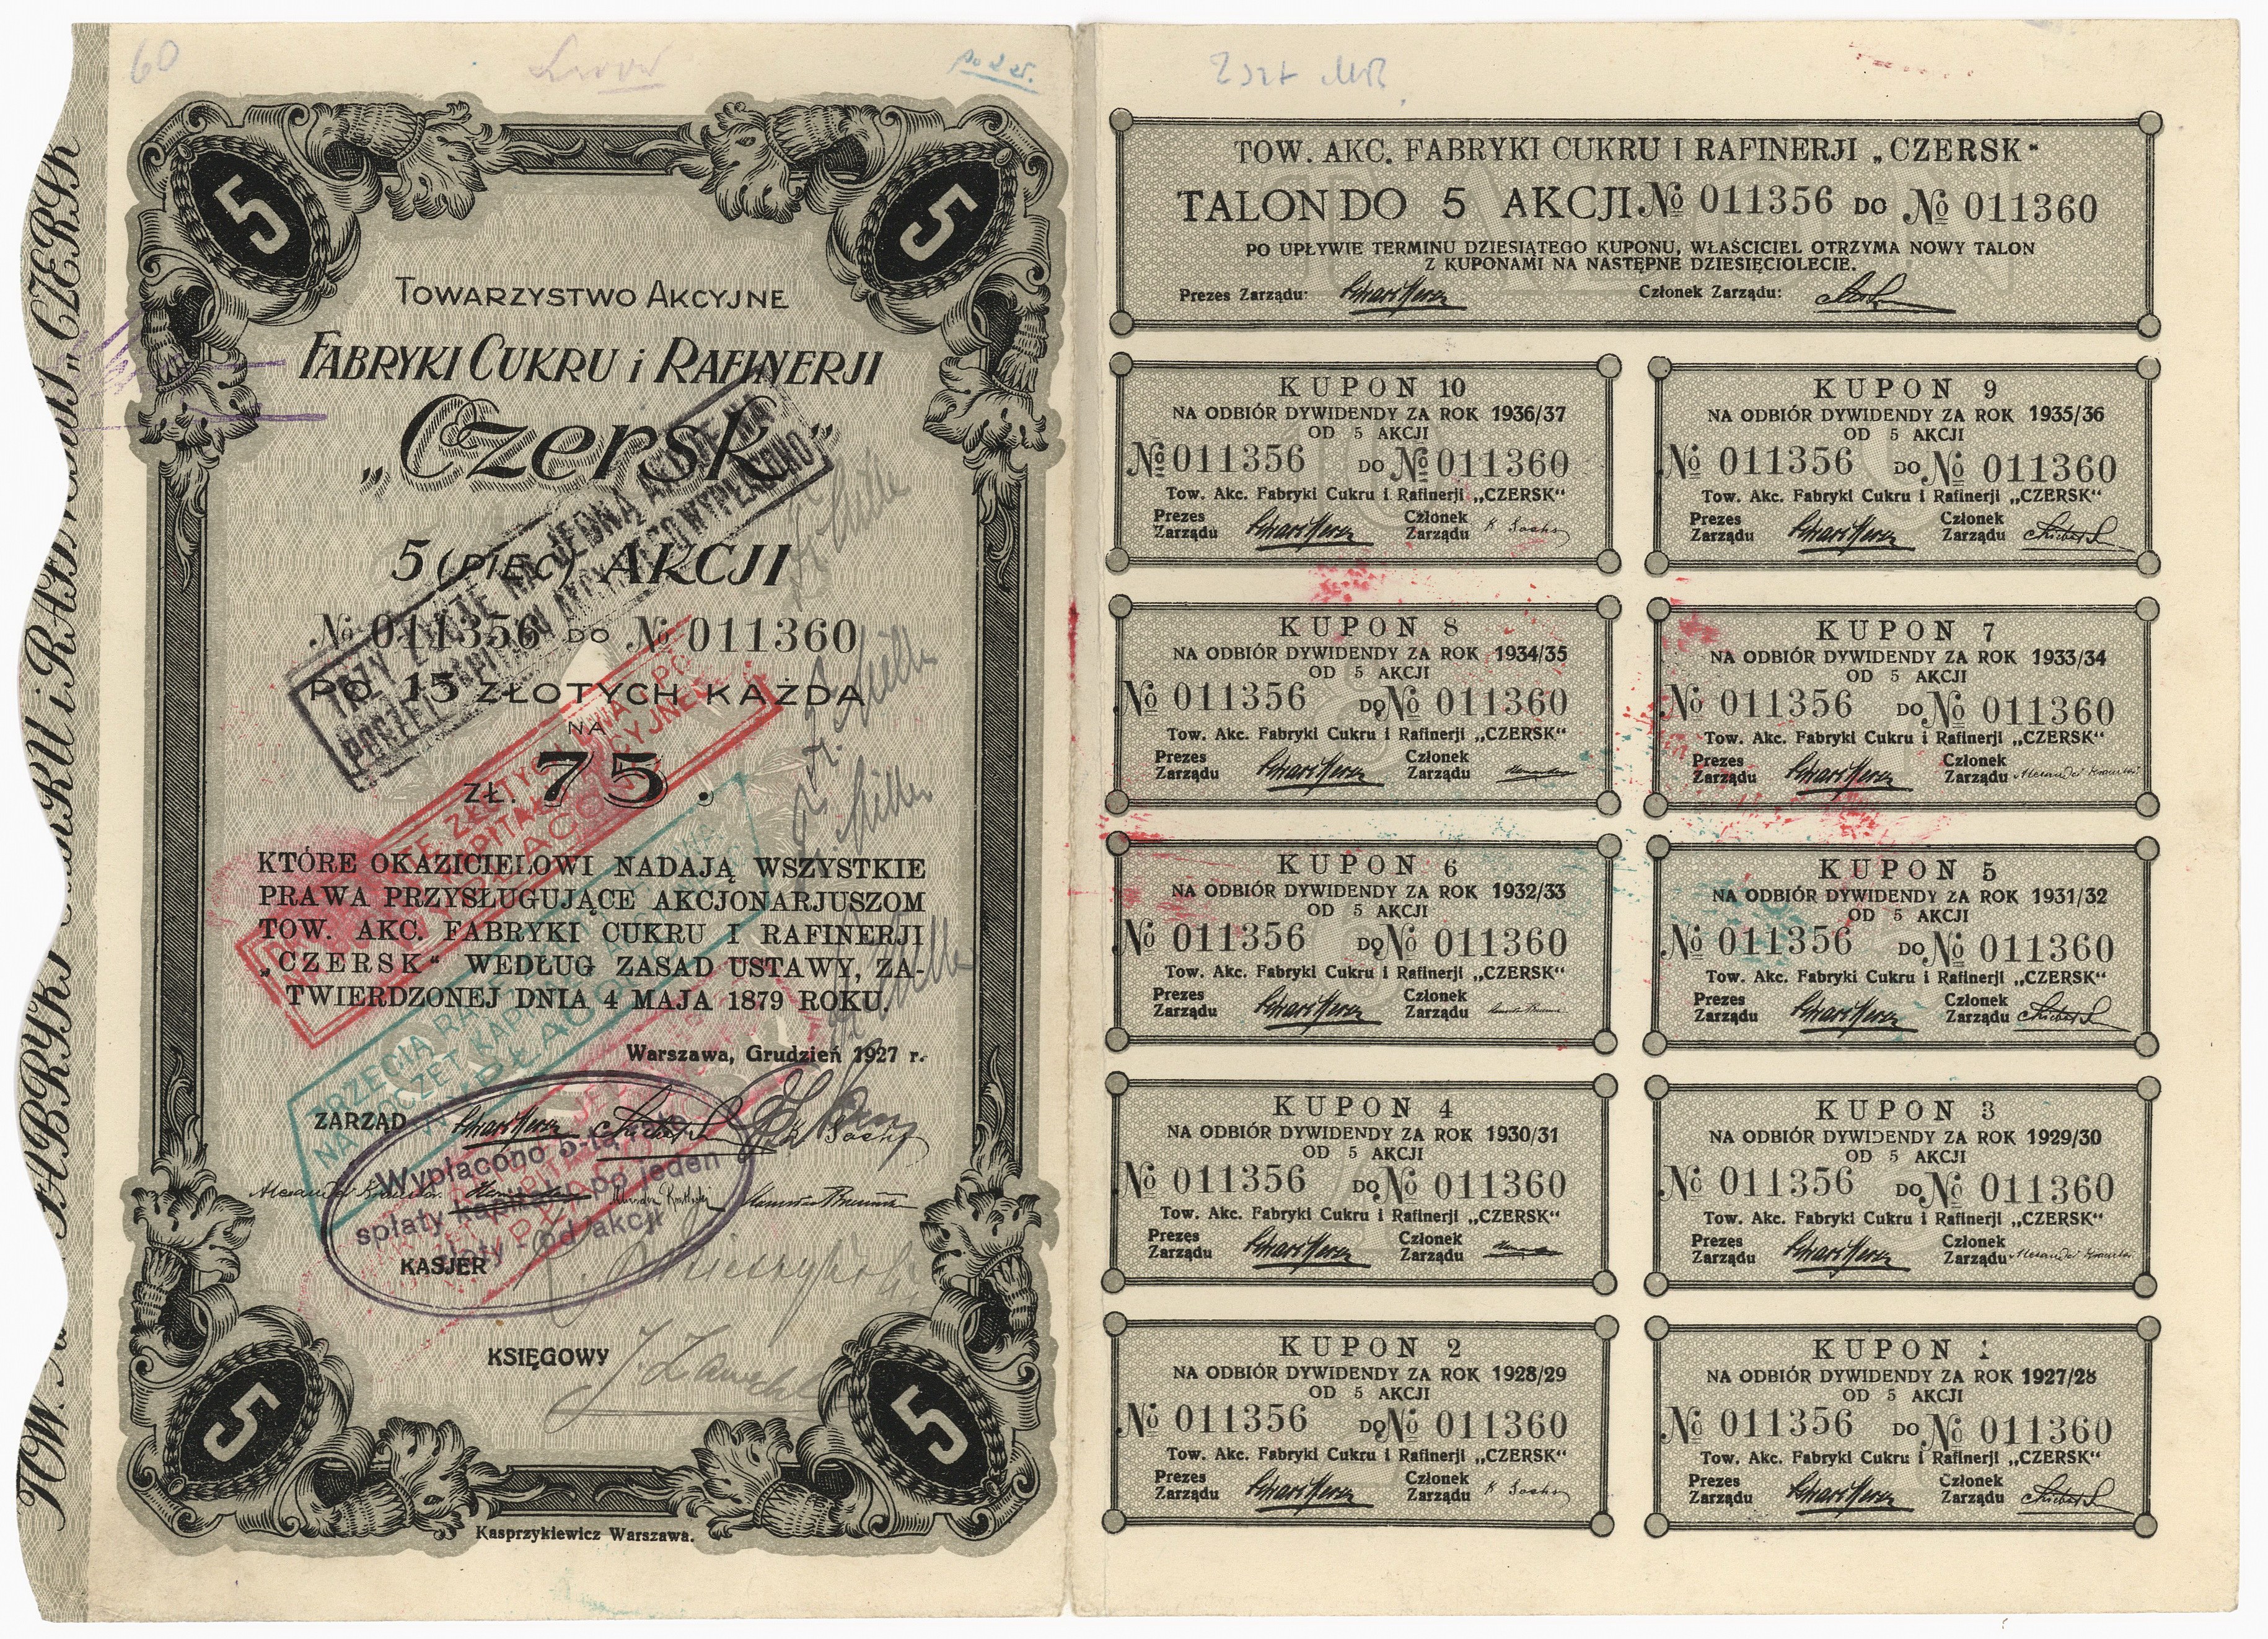 60
Lwów
po 2 zł.
2 szt
TOW. AKC. FABRYKI CUKRU i RAFINERJI „CZERSK
5 5
TOWARZYSTWO AKCYJNE
FABRYKI CUKRU i RAFINERJI
„Czersk”
5 (PIĘĆ) AKCJI
№ 011356 DO № 011360
PO 15 ZŁOTYCH KAŻDA
NA
ZŁ. 75.
KTÓRE OKAZICIELOWI NADAJĄ WSZYSTKIE
PRAWA PRZYSŁUGUJĄCE AKCJONARJUSZOM
TOW. AKC. FABRYKI CUKRU I RAFINERJI
„CZERSK“ WEDŁUG ZASAD USTAWY, ZA-
TWIERDZONEJ DNIA 4 MAJA 1879 ROKU.
Warszawa, Grudzień 1927 r.
ZARZĄD
KASJER
KSIĘGOWY
5 5
Kasprzykiewicz Warszawa.
TRZY ZŁOTE NA JEDNĄ AKCJĘ NA
KAPITAŁU AKCYJNEGO WYPŁACONO
ZŁOTY
WYPŁACONO
TRZECIA RATA
NA POCZET KAPITAŁU
WYPŁACONO
Wypłacono 5-tą ratę
spłaty kapitału po jeden
złoty - od akcji
TOW. AKC. FABRYKI CUKRU I RAFINERJI „CZERSK“
TALON DO 5 AKCJI № 011356 DO № 011360
PO UPŁYWIE TERMINU DZIESIĄTEGO KUPONU, WŁAŚCICIEL OTRZYMA NOWY TALON
Z KUPONAMI NA NASTĘPNE DZIESIĘCIOLECIE.
Prezes Zarządu: Członek Zarządu:
KUPON 10
NA ODBIÓR DYWIDENDY ZA ROK 1936/37
OD 5 AKCJI
№ 011356 DO № 011360
Tow. Akc. Fabryki Cukru i Rafinerji „CZERSK“
Prezes Członek
Zarządu Zarządu
KUPON 9
NA ODBIÓR DYWIDENDY ZA ROK 1935/36
OD 5 AKCJI
№ 011356 DO № 011360
Tow. Akc. Fabryki Cukru i Rafinerji „CZERSK“
Prezes Członek
Zarządu Zarządu
KUPON 8
NA ODBIÓR DYWIDENDY ZA ROK 1934/35
OD 5 AKCJI
№ 011356 DO № 011360
Tow. Akc. Fabryki Cukru i Rafinerji „CZERSK“
Prezes Członek
Zarządu Zarządu
KUPON 7
NA ODBIÓR DYWIDENDY ZA ROK 1933/34
OD 5 AKCJI
№ 011356 DO № 011360
Tow. Akc. Fabryki Cukru i Rafinerji „CZERSK“
Prezes Członek
Zarządu Zarządu
KUPON 6
NA ODBIÓR DYWIDENDY ZA ROK 1932/33
OD 5 AKCJI
№ 011356 DO № 011360
Tow. Akc. Fabryki Cukru i Rafinerji „CZERSK“
Prezes Członek
Zarządu Zarządu
KUPON 5
NA ODBIÓR DYWIDENDY ZA ROK 1931/32
OD 5 AKCJI
№ 011356 DO № 011360
Tow. Akc. Fabryki Cukru i Rafinerji „CZERSK“
Prezes Członek
Zarządu Zarządu
KUPON 4
NA ODBIÓR DYWIDENDY ZA ROK 1930/31
OD 5 AKCJI
№ 011356 DO № 011360
Tow. Akc. Fabryki Cukru i Rafinerji „CZERSK“
Prezes Członek
Zarządu Zarządu
KUPON 3
NA ODBIÓR DYWIDENDY ZA ROK 1929/30
OD 5 AKCJI
№ 011356 DO № 011360
Tow. Akc. Fabryki Cukru i Rafinerji „CZERSK“
Prezes Członek
Zarządu Zarządu
KUPON 2
NA ODBIÓR DYWIDENDY ZA ROK 1928/29
OD 5 AKCJI
№ 011356 DO № 011360
Tow. Akc. Fabryki Cukru i Rafinerji „CZERSK“
Prezes Członek
Zarządu Zarządu
KUPON 1
NA ODBIÓR DYWIDENDY ZA ROK 1927/28
OD 5 AKCJI
№ 011356 DO № 011360
Tow. Akc. Fabryki Cukru i Rafinerji „CZERSK“
Prezes Członek
Zarządu Zarządu